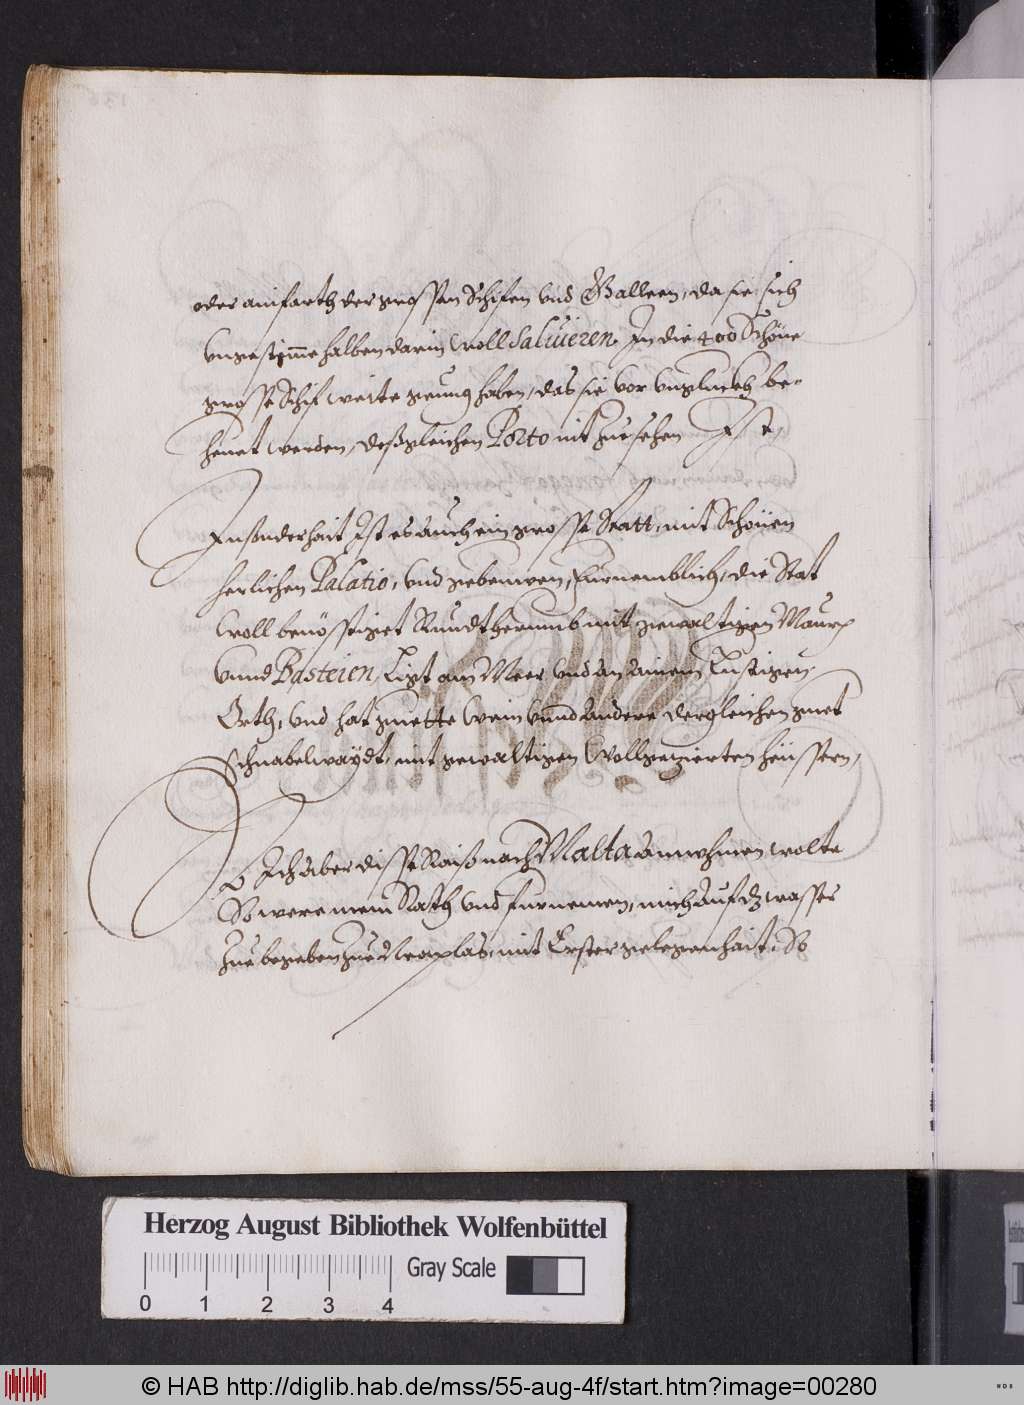 oder ainfarth der grossen Schifen vnd Galleen, da sie sich
vngestimme halben darin woll Saluieren. In die 400 Schöne
grosse Schif weite genug haben, das sie vor vnglückh be-
heuet werden, deßgleichen Porto nit zue sehen Ist,
Insonderhait Ist es auch ein grosse Statt, mit Schönen
herlichen Palatio, vnd gebeuen, furnemblich, die Stat
woll beuösstiget Rundtherumb mit gewaltigen Maurn
vnnd Basteien, Ligt am Meer vnd an ainem Lustigen
Orth, vnd hat guette Wein vnnd andere dergleichen guet
Schnabelwaydt, mit gewaltigen Wollgezierten heüssern,
So Ich aber disse Raiß nach Malta annehmen wolte
So were mein Rath vnd furnemen, mich auf dz wasser
Zue begeben Zue Neaplas, mit Erster gelegenhait. So
Herzog August Bibliothek Wolfenbüttel
Gray Scale
0 1 2 3 4
© HAB http://diglib.hab.de/mss/55-aug-4f/start.htm?image=00280